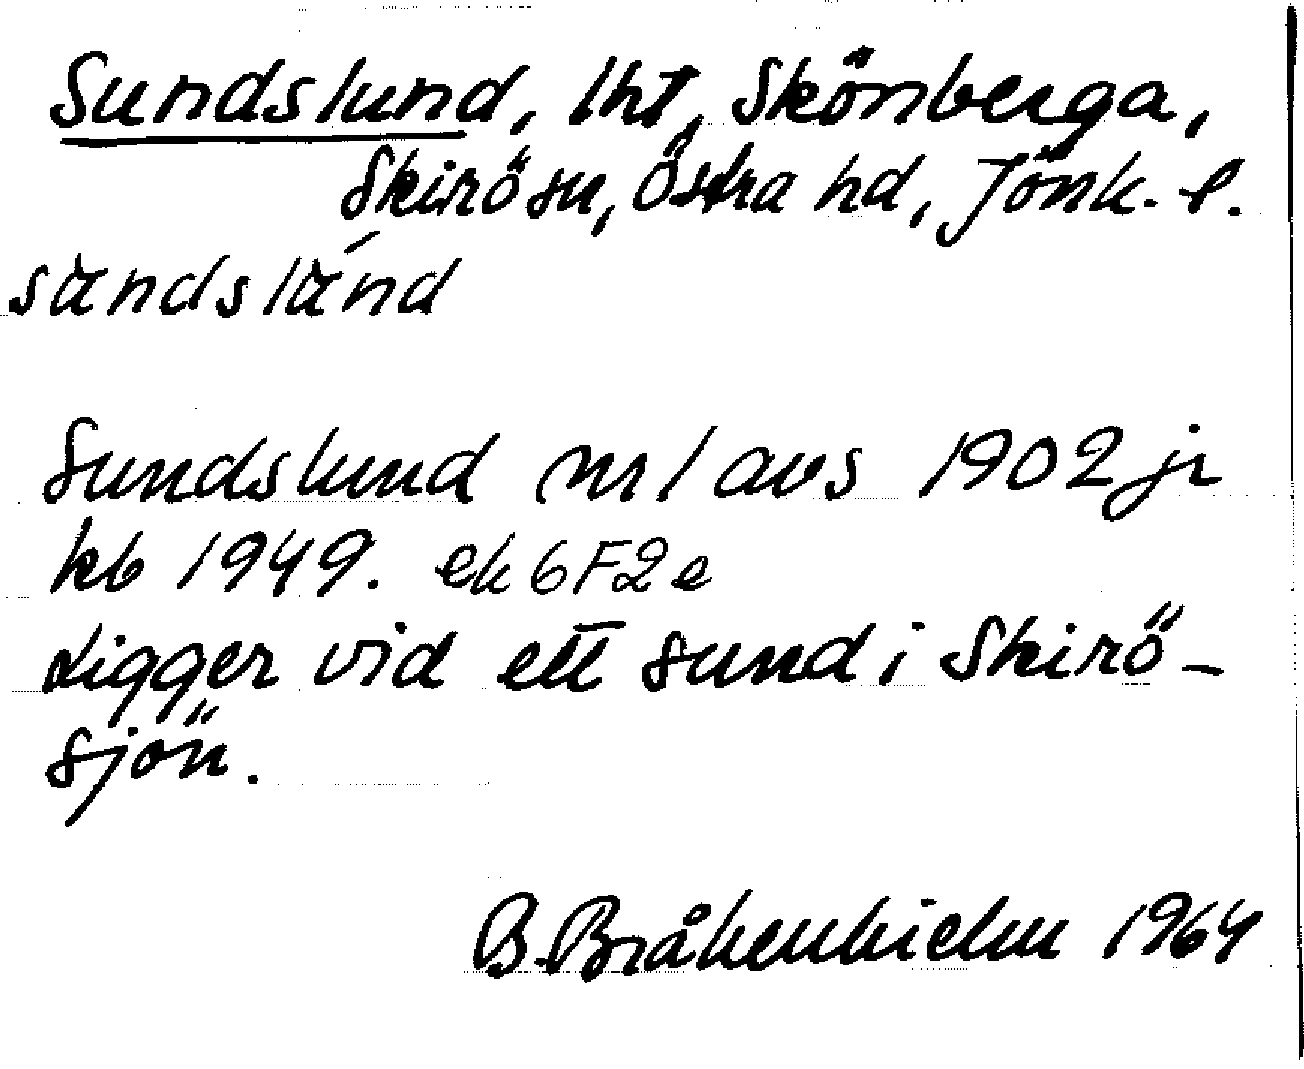 Sundslund, lht, Skönberga,
Skirö sn, Östra hd, Jönk. l.
sàndslánd
Sundslund m/avs 1902 jr
kb 1949. ek 6F2e
Ligger vid ett sund i Skirö-
sjön.
B. Bråkenhielm 1964